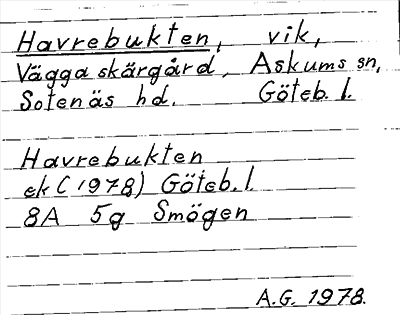 Havrebukten, vik,
Vägga skärgård, Askums sn,
Sotenäs hd. Göteb. l.
Havrebukten
ek (1978) Göteb. l.
8A 5g Smögen
A.G. 1978.